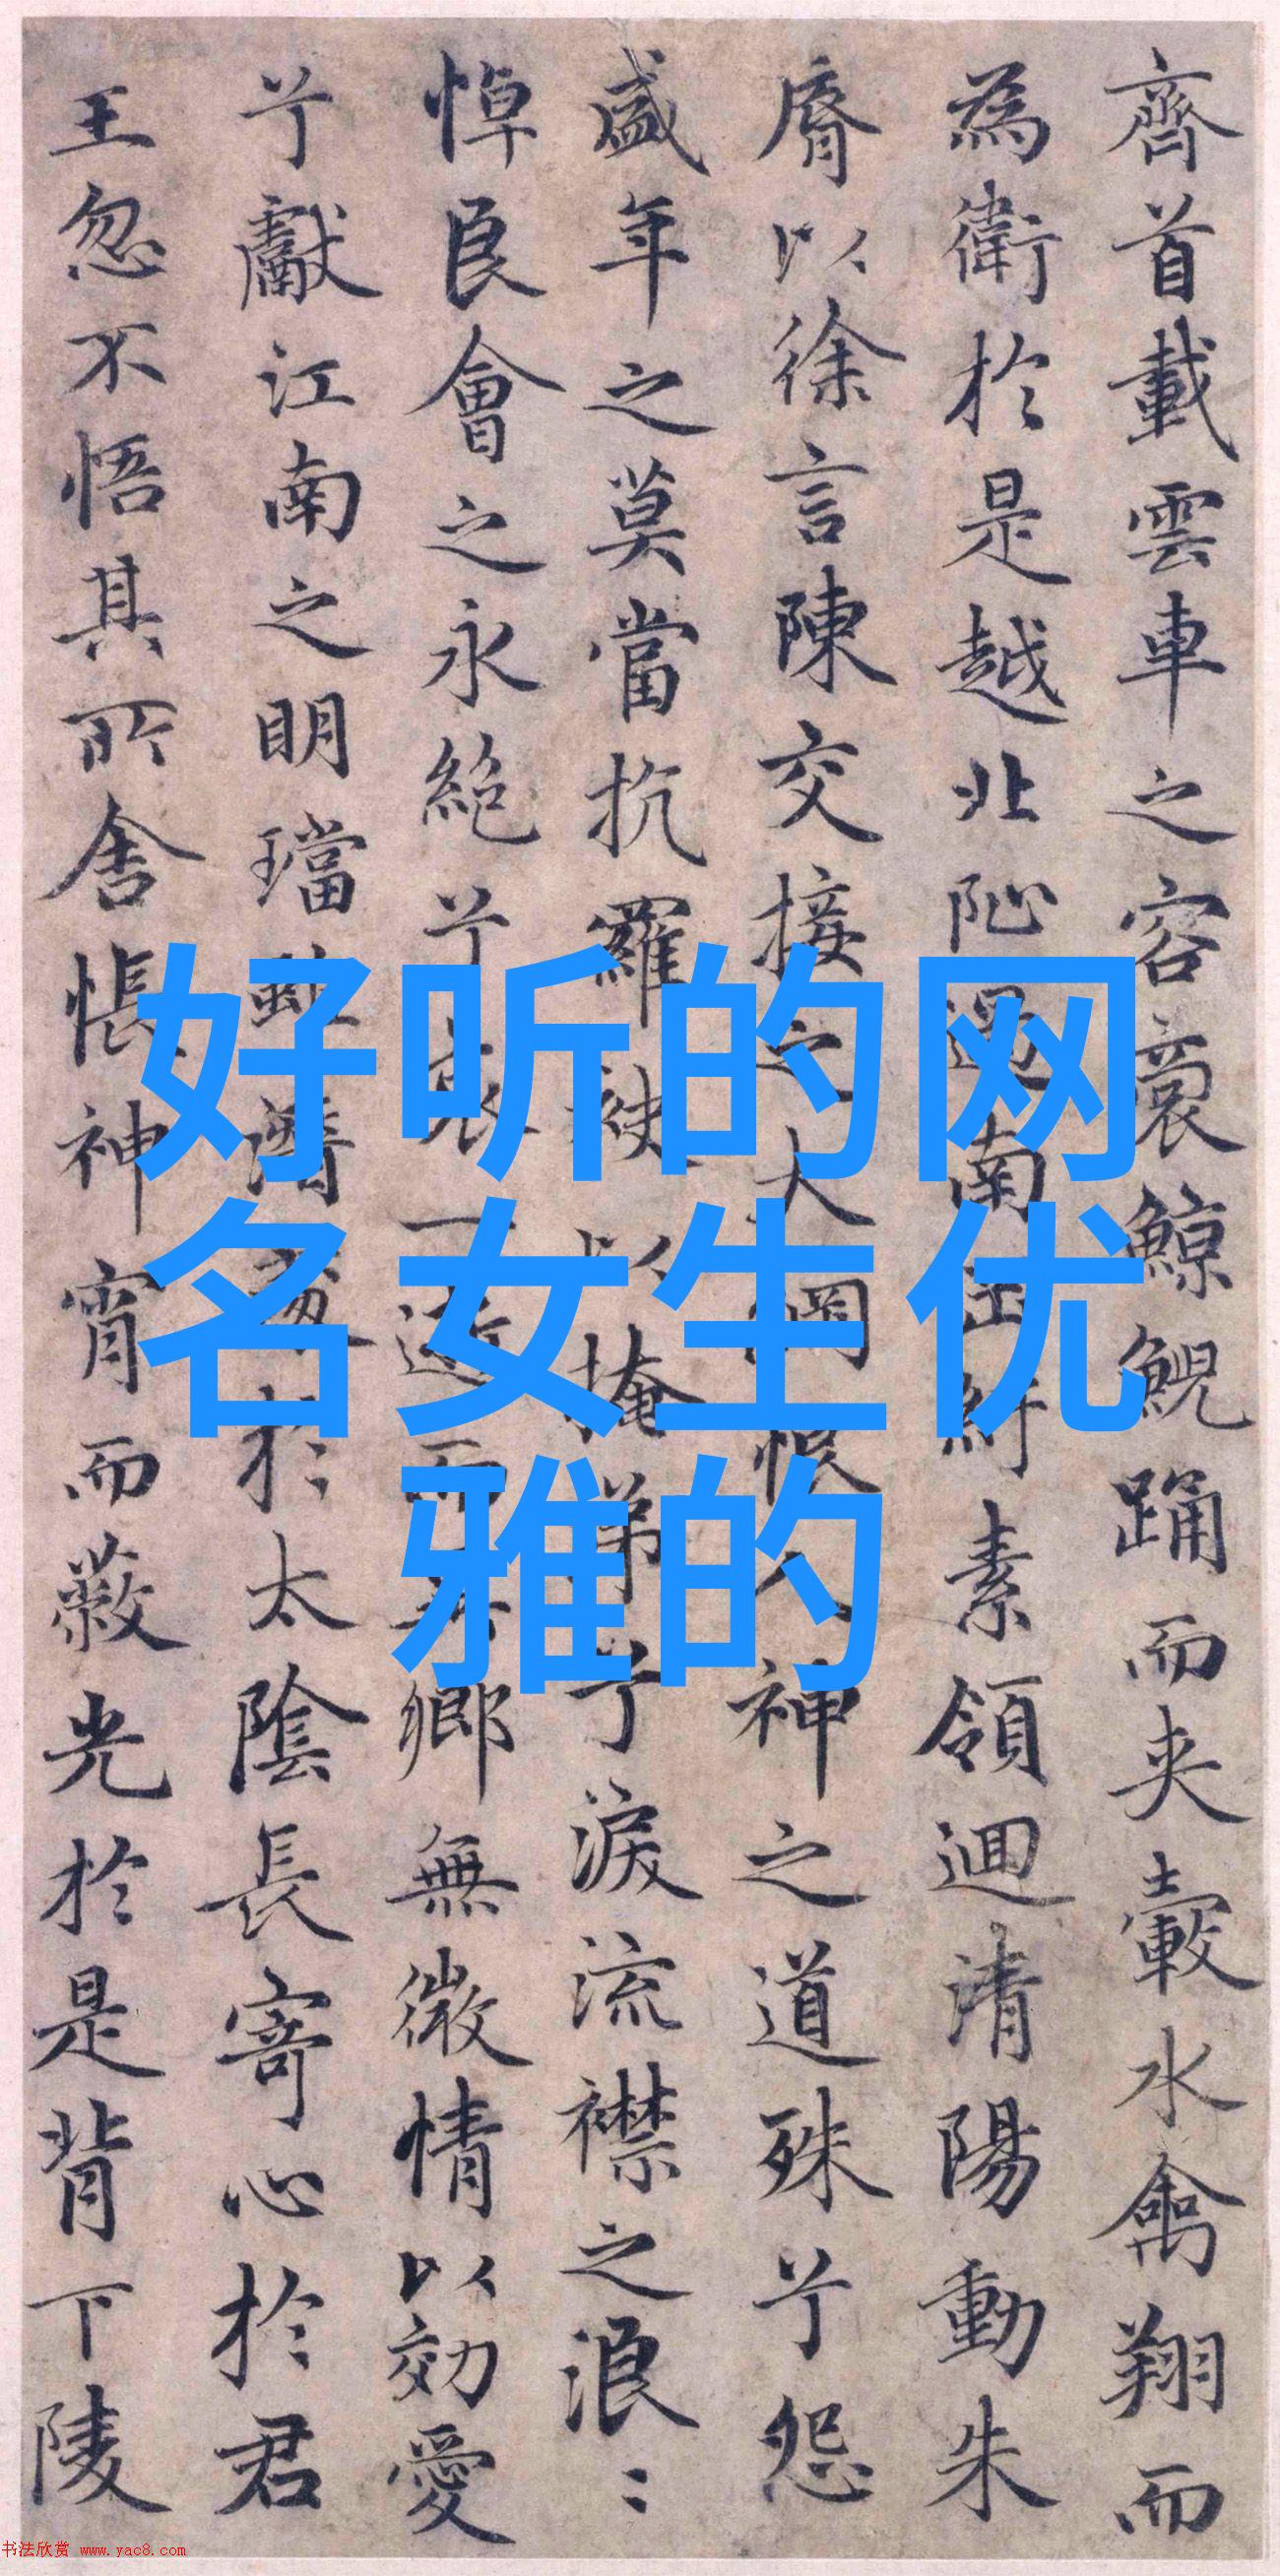 齊首載雲車之容裔鯨鯢踊而夾轂水禽翔而
為衛於是越北沚過南岡紆素領迴清陽動朱
脣以徐言陳交接之大綱恨人神之道殊兮怨
盛年之莫當抗羅袂以掩涕兮淚流襟之浪〻
悼良會之永絕兮哀一逝而異鄉無微情以効愛
兮獻江南之明璫雖潛處於太陰長寄心於君
王忽不悟其所舍悵神宵而蔽光於是背下陵
好听的网
名女生优
雅的
书法欣赏 www.yac8.com